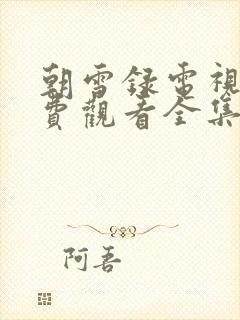 朝雪録電視
費觀看全集
阿吾